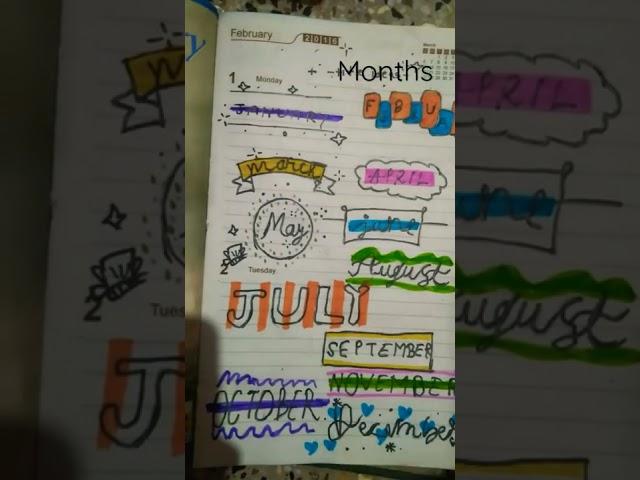 February 2016
Months
1 Monday
JANUARY
March
APRIL
May
june
2 Tuesday
August
JULY
SEPTEMBER
OCTOBER
NOVEMBER
December